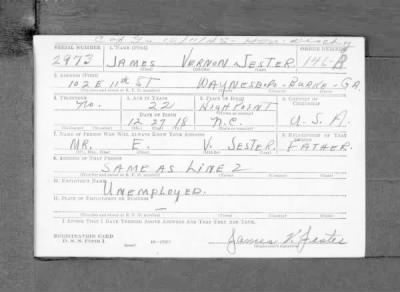 SERIAL NUMBER 1. NAME (Print) ORDER NUMBER
2973 JAMES VERNON JESTER 146-A
2. ADDRESS (Print)
102 E 11th ST WAYNESBORO-BURKE-GA.
3. TELEPHONE 4. AGE IN YEARS 5. PLACE OF BIRTH 6. COUNTRY OF CITIZENSHIP
No. 22 HIGH POINT
DATE OF BIRTH
12 27 18 N.C. U.S.A.
7. NAME OF PERSON WHO WILL ALWAYS KNOW YOUR ADDRESS 8. RELATIONSHIP OF THAT PERSON
MR. E. V. JESTER FATHER
9. ADDRESS OF THAT PERSON
SAME AS LINE 2
10. EMPLOYER'S NAME
UNEMPLOYED.
11. PLACE OF EMPLOYMENT OR BUSINESS
I AFFIRM THAT I HAVE VERIFIED ABOVE ANSWERS AND THAT THEY ARE TRUE.
REGISTRATION CARD
D. S. S. FORM 1
James V. Jester